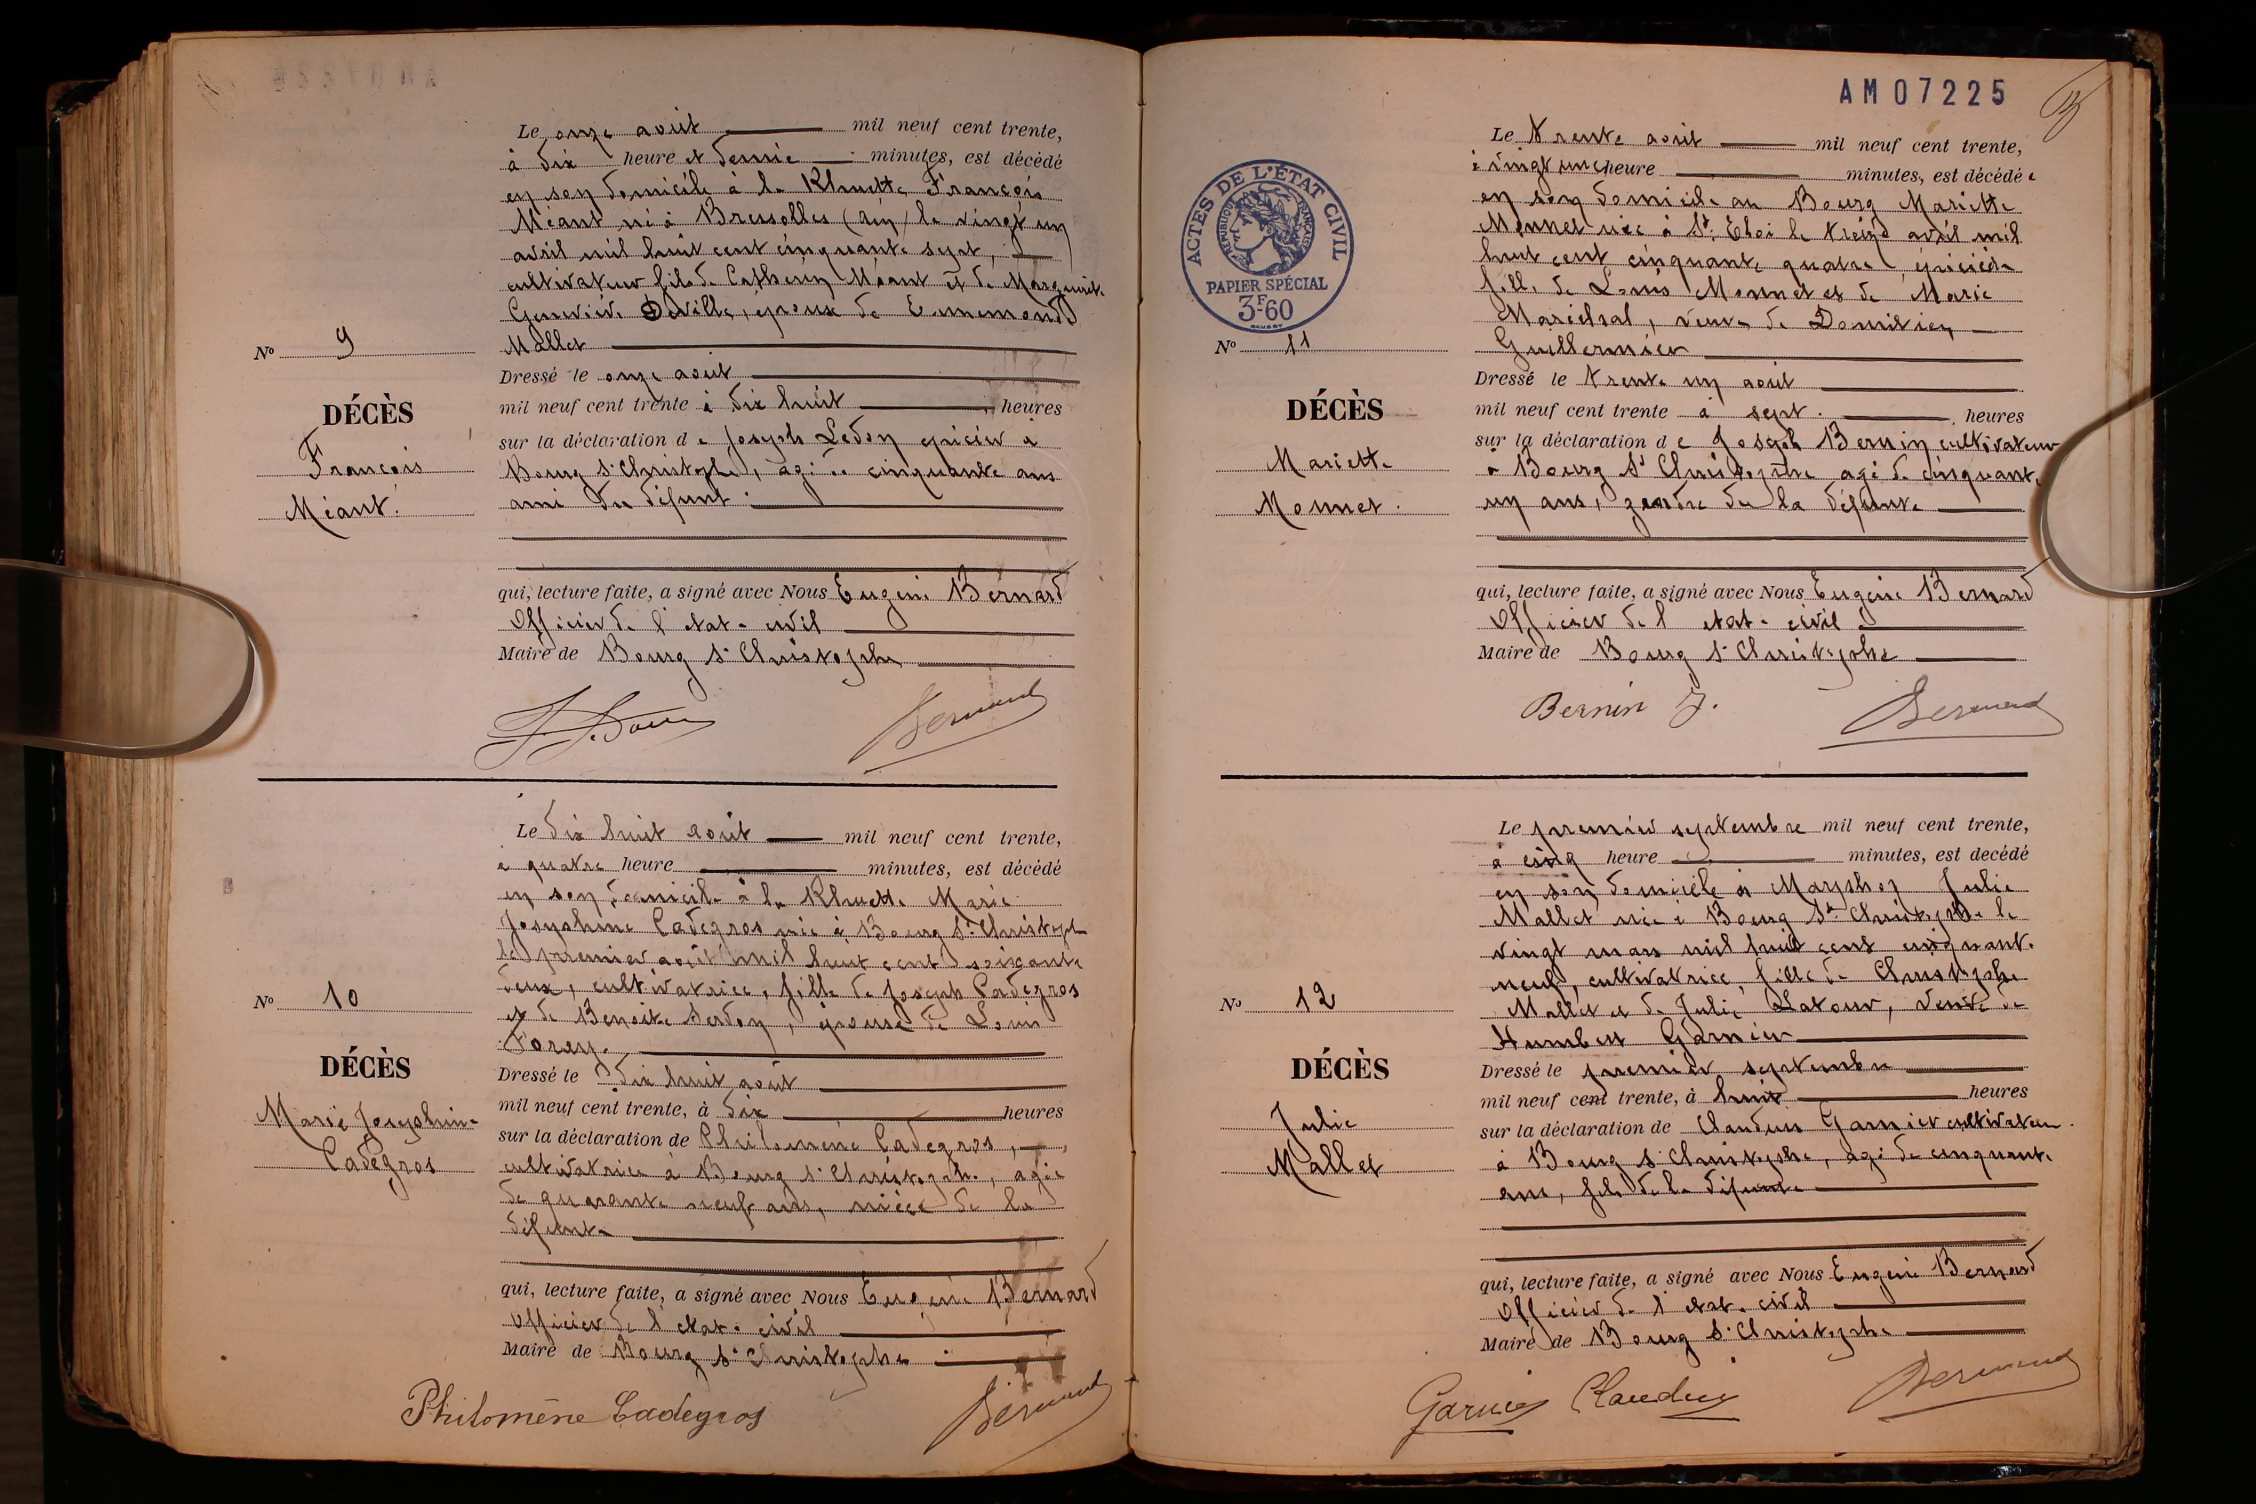 Le onze août mil neuf cent trente,
à dix heure et demie minutes, est décédé
en son domicile à la Rhuette François
Méant né à Bressolles (Ain) le vingt un
avril mil huit cent cinquante sept,
cultivateur fils de Catherin Méant et de Marguerite
Geneviève Deville, époux de Ennemonde
Mallet
Dressé le onze août
mil neuf cent trente à dix huit heures
sur la déclaration de Joseph Ledon épicier à
Bourg St Christophe, agé de cinquante ans
ami du défunt.
qui, lecture faite, a signé avec Nous Eugène Bernard
Officier de l'état-civil
Maire de Bourg St Christophe
Bernard
No 9
DÉCÈS
François
Méant.
Le dix huit août mil neuf cent trente,
à quatre heure minutes, est décédé
en son domicile à la Rhuette Marie
Joséphine Cadegros née à Bourg St Christophe
le premier août mil huit cent soixante
deux, cultivatrice, fille de Joseph Cadegros
et de Benoite Serdon, épouse de Louis
Forey.
Dressé le dix huit août
mil neuf cent trente, à dix heures
sur la déclaration de Philomène Cadegros,
cultivatrice à Bourg St Christophe, agée
de quarante neuf ans, nièce de la
défunte
qui, lecture faite, a signé avec Nous Eugène Bernard
Officier de l'état-civil
Maire de Bourg St Christophe
Philomène Cadegros Bernard
No 10
DÉCÈS
Marie Joséphine
Cadegros
AM07225
ACTES DE L'ÉTAT CIVIL
RÉPUBLIQUE FRANÇAISE
PAPIER SPÉCIAL
3F60
Le trente août mil neuf cent trente,
à vingt une heure minutes, est décédée
en son domicile au Bourg Mariette
Monnet née à St Eloi le treize avril mil
huit cent cinquante quatre, épicière
fille de Louis Monnet et de Marie
Maréchal, veuve de Domitien
Guillermier
Dressé le trente un août
mil neuf cent trente à sept heures
sur la déclaration de Joseph Bernin cultivateur
à Bourg St Christophe agé de cinquante
un ans, gendre de la défunte
qui, lecture faite, a signé avec Nous Eugène Bernard
Officier de l'état-civil
Maire de Bourg St Christophe
Bernin J. Bernard
No 11
DÉCÈS
Mariette
Monnet.
Le premier septembre mil neuf cent trente,
à cinq heure minutes, est decédé
en son domicile à Marphoz Julie
Mallet née à Bourg St Christophe le
vingt mars mil huit cent cinquante
neuf, cultivatrice, fille de Christophe
Mallet et de Julie Latour, veuve de
Humbert Garnier
Dressé le premier septembre
mil neuf cent trente, à huit heures
sur la déclaration de Claudius Garnier cultivateur
à Bourg St Christophe, agé de cinquante
ans, fils de la défunte
qui, lecture faite, a signé avec Nous Eugène Bernard
Officier de l'état-civil
Maire de Bourg St Christophe
Garnier Claudius Bernard
No 12
DÉCÈS
Julie
Mallet